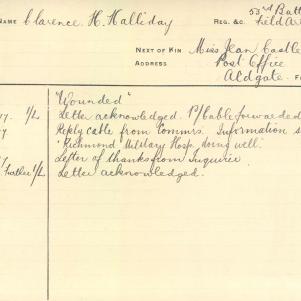 NAME Clarence H. Halliday
REG. &C. 53rd Batt
Field Art
NEXT OF KIN Miss Jean Castle
ADDRESS Post Office
Aldgate.
"Wounded"
17. 1/2 Letter acknowledged. P/Cable forwarded
Reply cable from Commrs. Information s
"Richmond Military Hosp. doing well."
Letter of thanks from Inquirer.
1/2 Letter acknowledged.